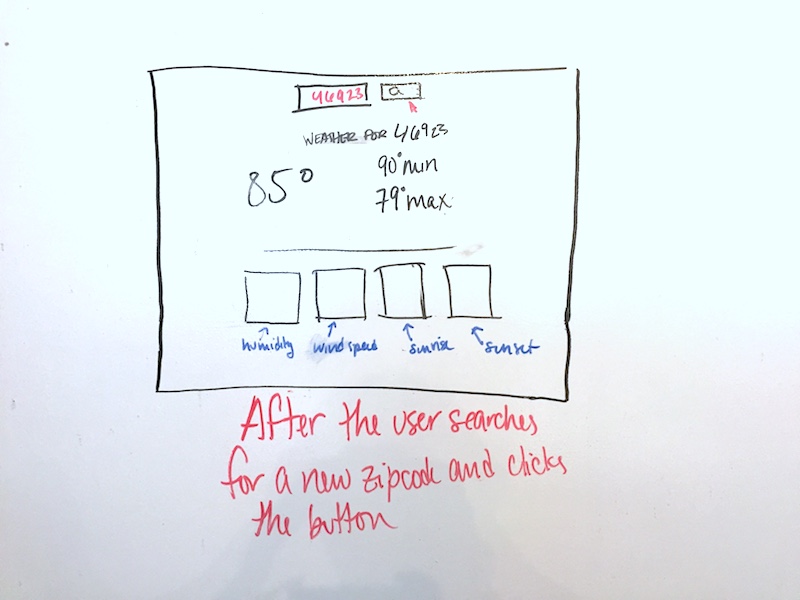 46923
a
WEATHER FOR 46923
85°
90° min
79° max
humidity wind speed sunrise sunset
After the user searches
for a new zipcode and clicks
the button